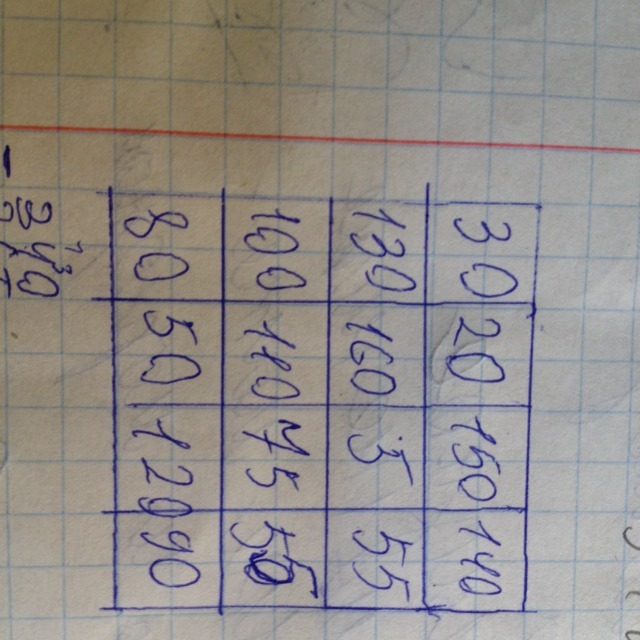 30 20 150 140
130 160 5 55
100 110 75 55
80 50 120 90
340